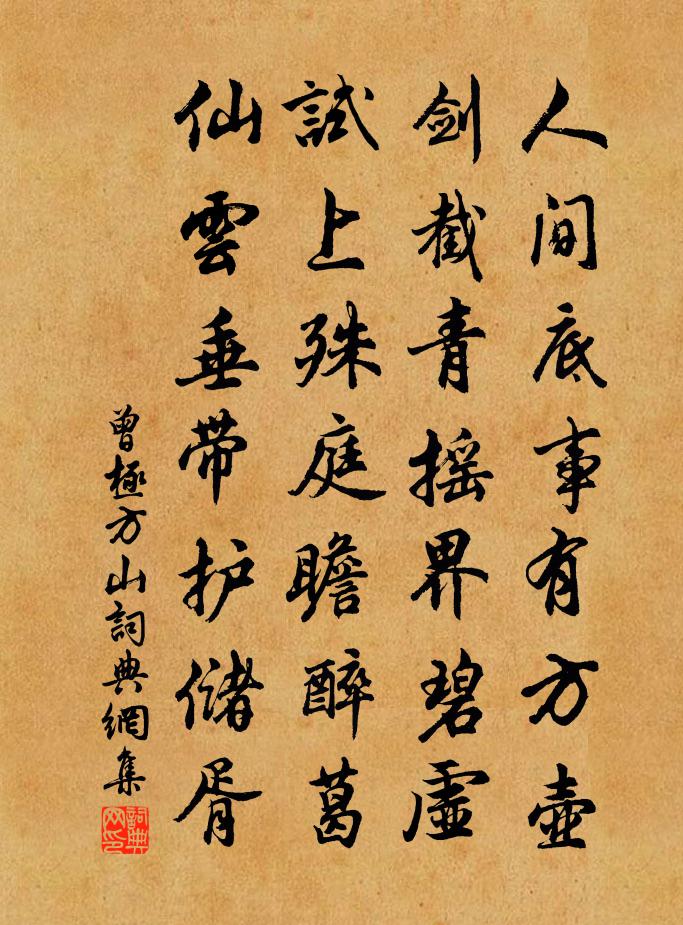 人间底事有方壶
剑截青摇界碧虚
試上殊庭瞻醉葛
仙雲垂带护储胥
曾極方山詞典網集
詞典網印